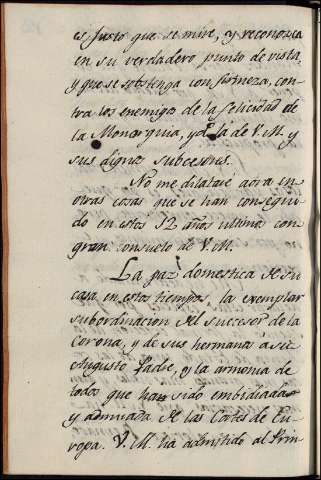 es justo que se mire, y reconozca
en su verdadero punto de vista,
y que se sostenga con firmeza, con-
tra los enemigos de la felicidad de
la Monarquia, y de la de V.M. y
sus dignos subcesores.
No me dilataré aora en
otras cosas que se han consegui-
do en estos 12 años ultimos con
gran consuelo de V.M.
La paz domestica de su
casa en estos tiempos, la exemplar
subordinacion del succesor de la
Corona, y de sus hermanos a su
Augusto Padre, y la armonia de
todos que han sido embidiada
y admirada de las Cortes de Eu-
ropa. V.M. ha admitido al Prin